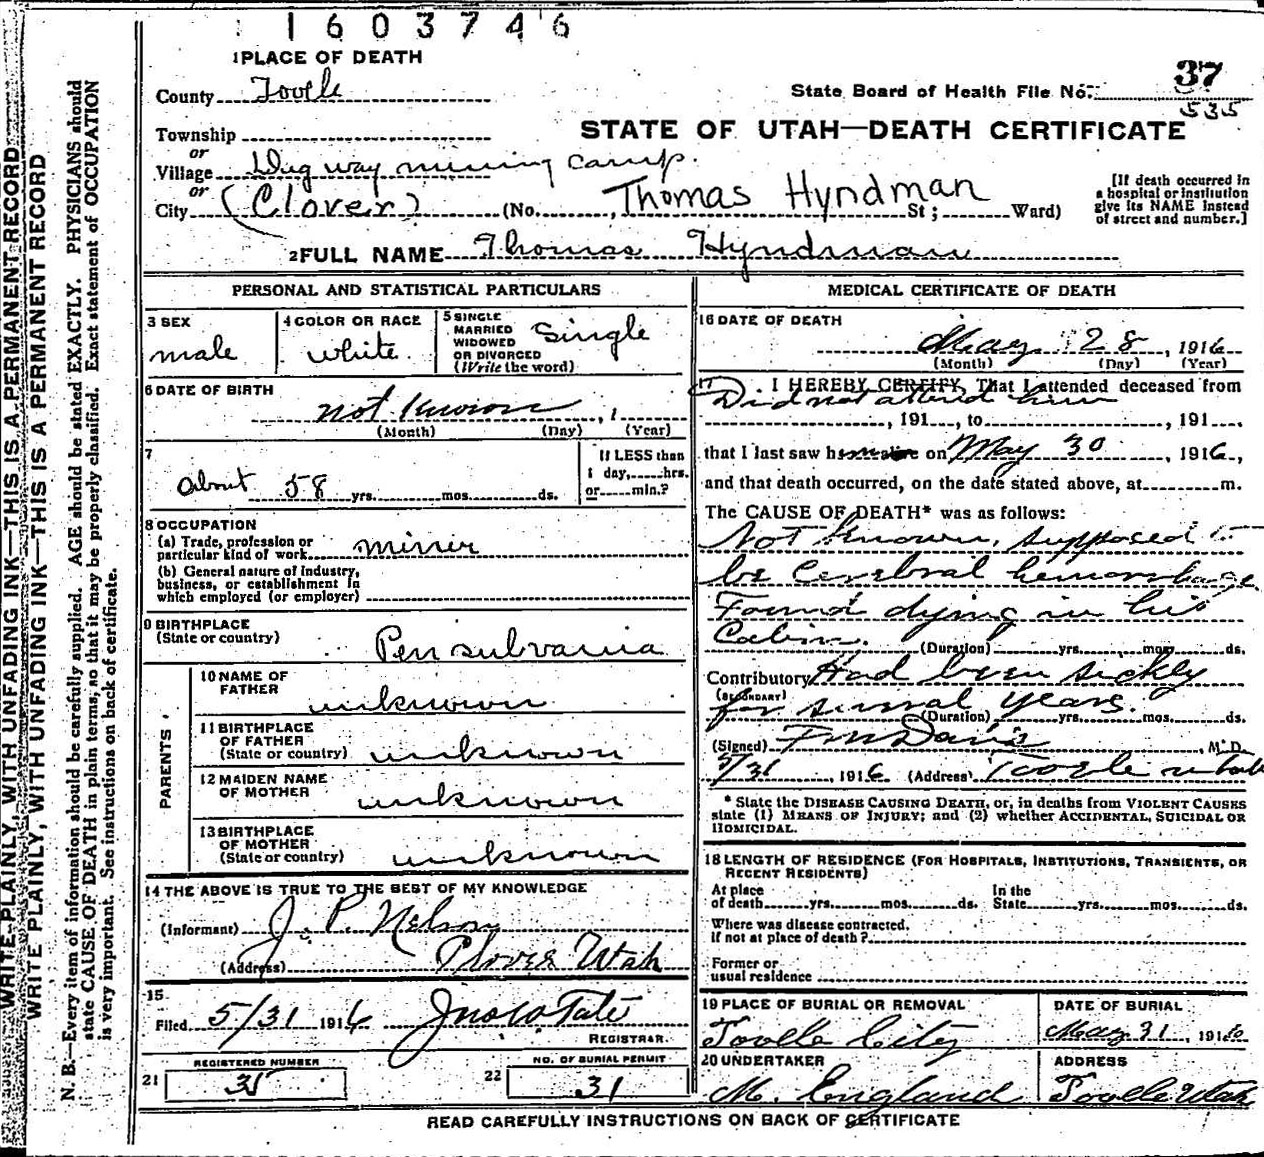 1603746
1 PLACE OF DEATH
County Tooele
State Board of Health File No. 37
535
Township
STATE OF UTAH—DEATH CERTIFICATE
or
Village Dugway mining camp.
or
City (Clover) (No. Thomas Hyndman St; Ward)
[If death occurred in
a hospital or institution
give its NAME instead
of street and number.]
2 FULL NAME Thomas Hyndman
PERSONAL AND STATISTICAL PARTICULARS
3 SEX
male
4 COLOR OR RACE
white
5 SINGLE
MARRIED
WIDOWED
OR DIVORCED
(Write the word)
Single
6 DATE OF BIRTH
not known , 1
(Month) (Day) (Year)
7
about 58 yrs. mos. ds.
If LESS than
1 day, hrs.
or min.?
8 OCCUPATION
(a) Trade, profession or
particular kind of work miner
(b) General nature of industry,
business, or establishment in
which employed (or employer)
9 BIRTHPLACE
(State or country)
Pensulvania
PARENTS
10 NAME OF
FATHER
unknown
11 BIRTHPLACE
OF FATHER
(State or country) unknown
12 MAIDEN NAME
OF MOTHER
unknown
13 BIRTHPLACE
OF MOTHER
(State or country) unknown
14 THE ABOVE IS TRUE TO THE BEST OF MY KNOWLEDGE
(Informant) J. P. Nelson
(Address) Clover Utah
15
Filed 5/31 1916 Jno W Tate
REGISTRAR.
REGISTERED NUMBER
21 31
NO. OF BURIAL PERMIT
22 31
MEDICAL CERTIFICATE OF DEATH
16 DATE OF DEATH
May 28, 1916
(Month) (Day) (Year)
17 I HEREBY CERTIFY, That I attended deceased from
Did not attend him
, 191 , to , 191 .
that I last saw h on May 30, 1916,
and that death occurred, on the date stated above, at m.
The CAUSE OF DEATH* was as follows:
Not known, supposed to
be Cerebral hemorrhage
Found dying in his
Cabin.
(Duration) yrs. mos. ds.
Contributory Had been sickly
(SECONDARY)
for several years.
(Duration) yrs. mos. ds.
(Signed) F M Davis, M. D.
5/31, 1916 (Address) Tooele Utah
* State the DISEASE CAUSING DEATH, or, in deaths from VIOLENT CAUSES
state (1) MEANS OF INJURY; and (2) whether ACCIDENTAL, SUICIDAL OR
HOMICIDAL.
18 LENGTH OF RESIDENCE (FOR HOSPITALS, INSTITUTIONS, TRANSIENTS, OR
RECENT RESIDENTS)
At place
of death yrs. mos. ds.
In the
State yrs. mos. ds.
Where was disease contracted.
If not at place of death?
Former or
usual residence
19 PLACE OF BURIAL OR REMOVAL
Tooele City
DATE OF BURIAL
May 31, 1916
20 UNDERTAKER
M. England
ADDRESS
Tooele Utah
READ CAREFULLY INSTRUCTIONS ON BACK OF CERTIFICATE
WRITE PLAINLY, WITH UNFADING INK—THIS IS A PERMANENT RECORD
WRITE PLAINLY, WITH UNFADING INK—THIS IS A PERMANENT RECORD
N. B.—Every item of information should be carefully supplied. AGE should be stated EXACTLY. PHYSICIANS should
state CAUSE OF DEATH in plain terms, so that it may be properly classified. Exact statement of OCCUPATION
is very important. See instructions on back of certificate.